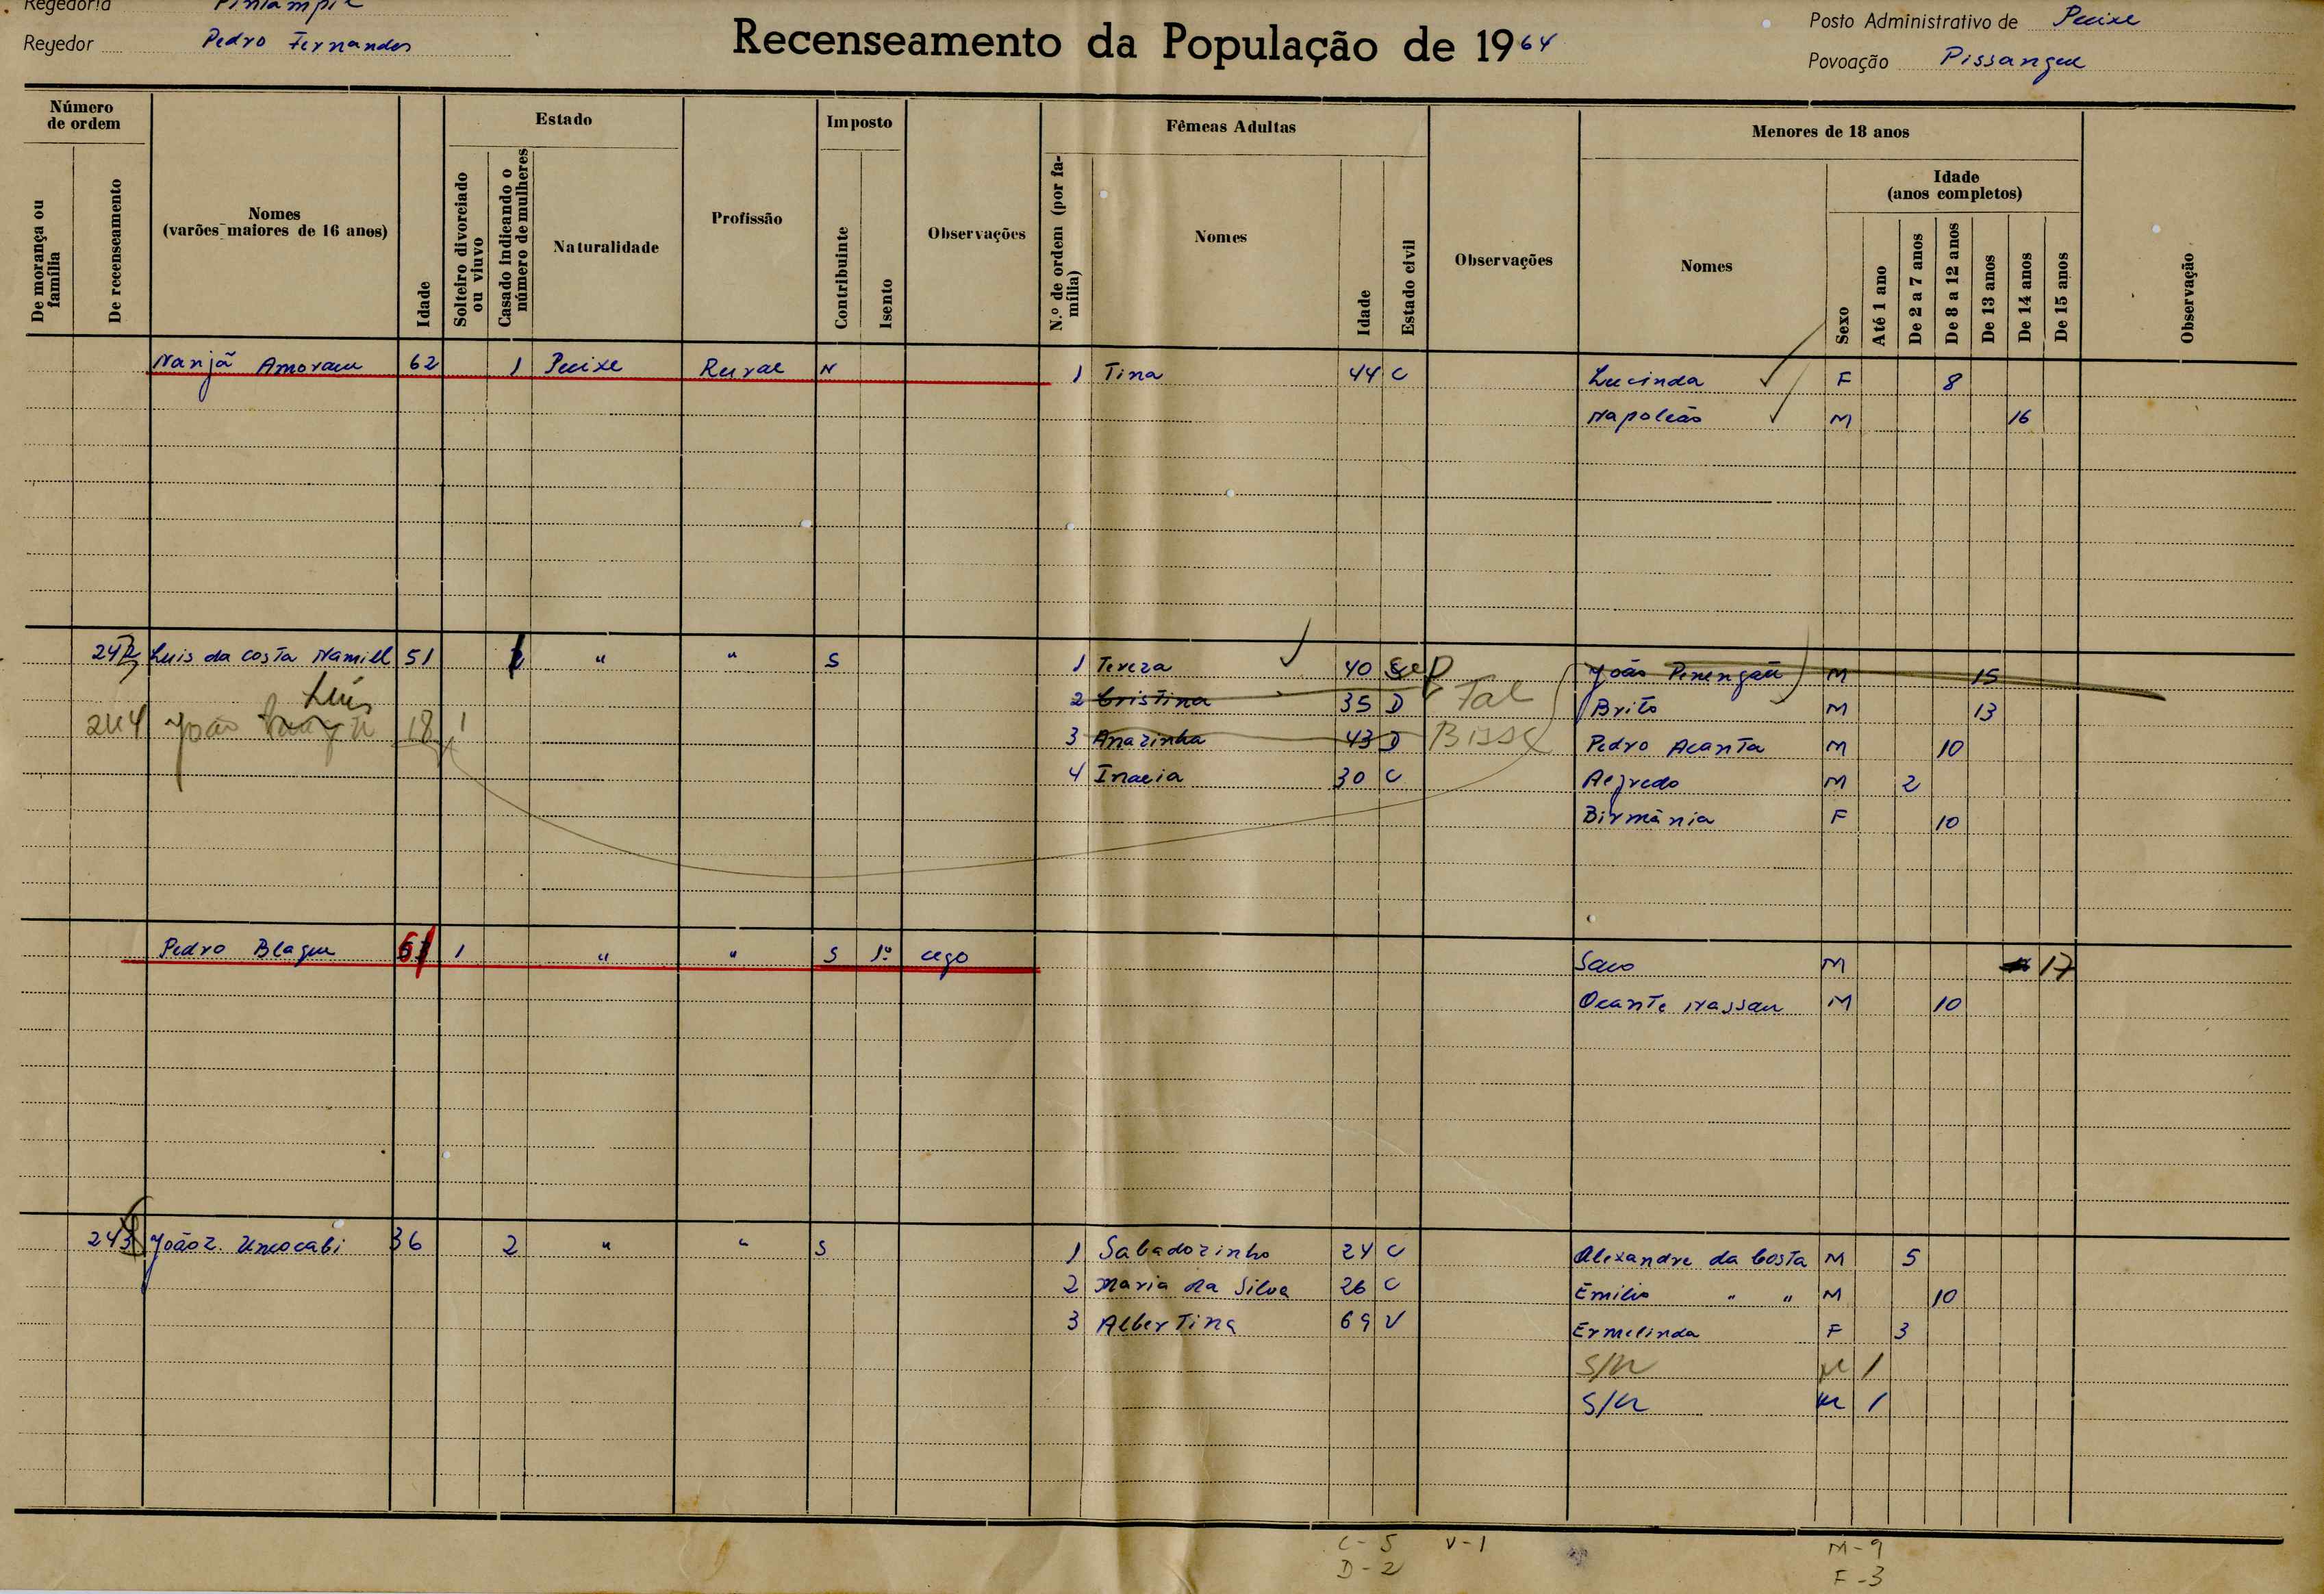 Regedoria
Regedor Pedro Fernandes
Recenseamento da População de 1964
Posto Administrativo de Pecixe
Povoação Pissangue
Número de ordem
De morança ou família
De recenseamento
Nomes (varões maiores de 16 anos)
Idade
Estado
Solteiro divorciado ou viuvo
Casado indicando o número de mulheres
Naturalidade
Profissão
Imposto
Contribuinte
Isento
Observações
Fêmeas Adultas
N.º de ordem (por família)
Nomes
Idade
Estado civil
Observações
Menores de 18 anos
Nomes
Sexo
Idade (anos completos)
Até 1 ano
De 2 a 7 anos
De 8 a 12 anos
De 13 anos
De 14 anos
De 15 anos
Observação
Nanjã Amorau 62 1 Pecixe Rural N 1 Tina 44 C Lucinda F 8
Napoleão M 16
Luis da costa Namill 51 " " S 1 Tereza 40 Sep João M 15
Luís
2 Cristina 35 D Fal Brito M 13
244 João 18 1
3 Anazinha 43 D Bisse Pedro Acanta M 10
4 Inacia 30 C Alfredo M 2
Birmânia F 10
Pedro Blague 61 1 " " S 1º cego Saco M 17
Ocante Nassau M 10
243 João Z. Umocabi 36 2 " " S 1 Sabadozinho 24 C Alexandre da Costa M 5
2 Maria da Silva 26 C Emilio " " M 10
3 Albertina 69 V Ermelinda F 3
S/N M 1
S/N M 1
C-5 V-1 M-9
D-2 F-3